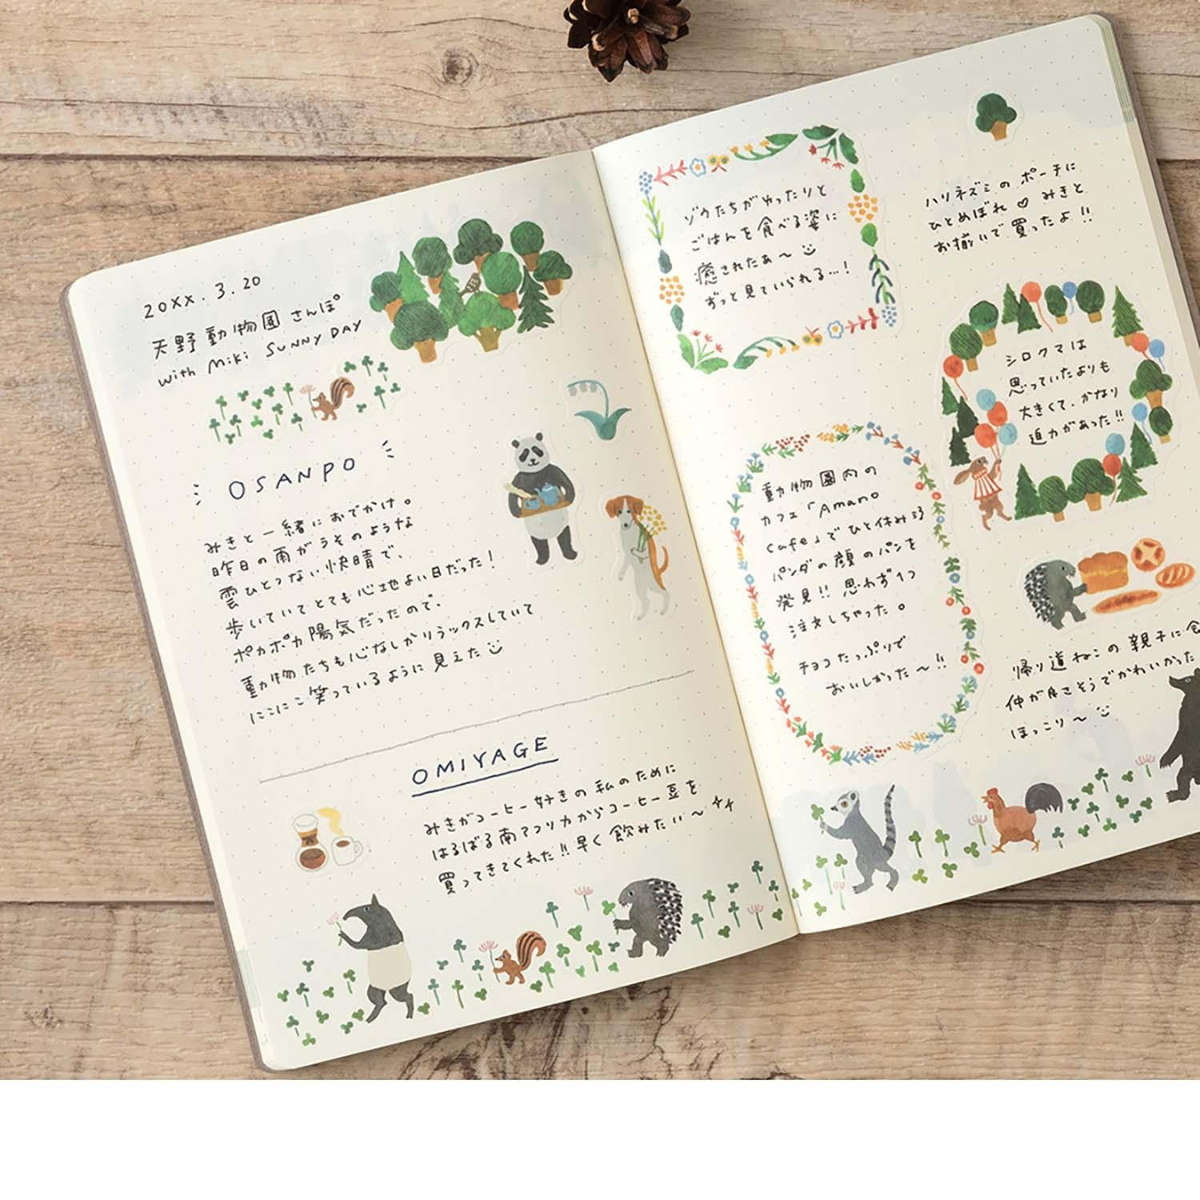 20XX.3.20
天野動物園さんぽ
with Miki SUNNY DAY
OSANPO
みきと一緒におでかけ。
昨日の雨がうそのような
雲ひとつない快晴で、
歩いていてとても心地よい日だった！
ポカポカ陽気だったので、
動物たちも心なしかリラックスしていて
にこにこ笑っているように見えた
OMIYAGE
みきがコーヒー好きの私のために
はるばる南アフリカからコーヒー豆を
買ってきてくれた!!早く飲みたい〜
ゾウたちがゆったりと
ごはんを食べる姿に
癒されたぁ〜
ずっと見ていられる…！
ハリネズミのポーチに
ひとめぼれ♡みきと
お揃いで買ったよ!!
シロクマは
思っていたよりも
大きくて、かなり
迫力があった!!
動物園内の
カフェ「Amano
Cafe」でひと休み
パンダの顔のパンを
発見!!思わず1つ
注文しちゃった。
チョコたっぷりで
おいしかった〜!!
帰り道ねこの親子に会
仲が良さそうでかわいかった
ほっこり〜